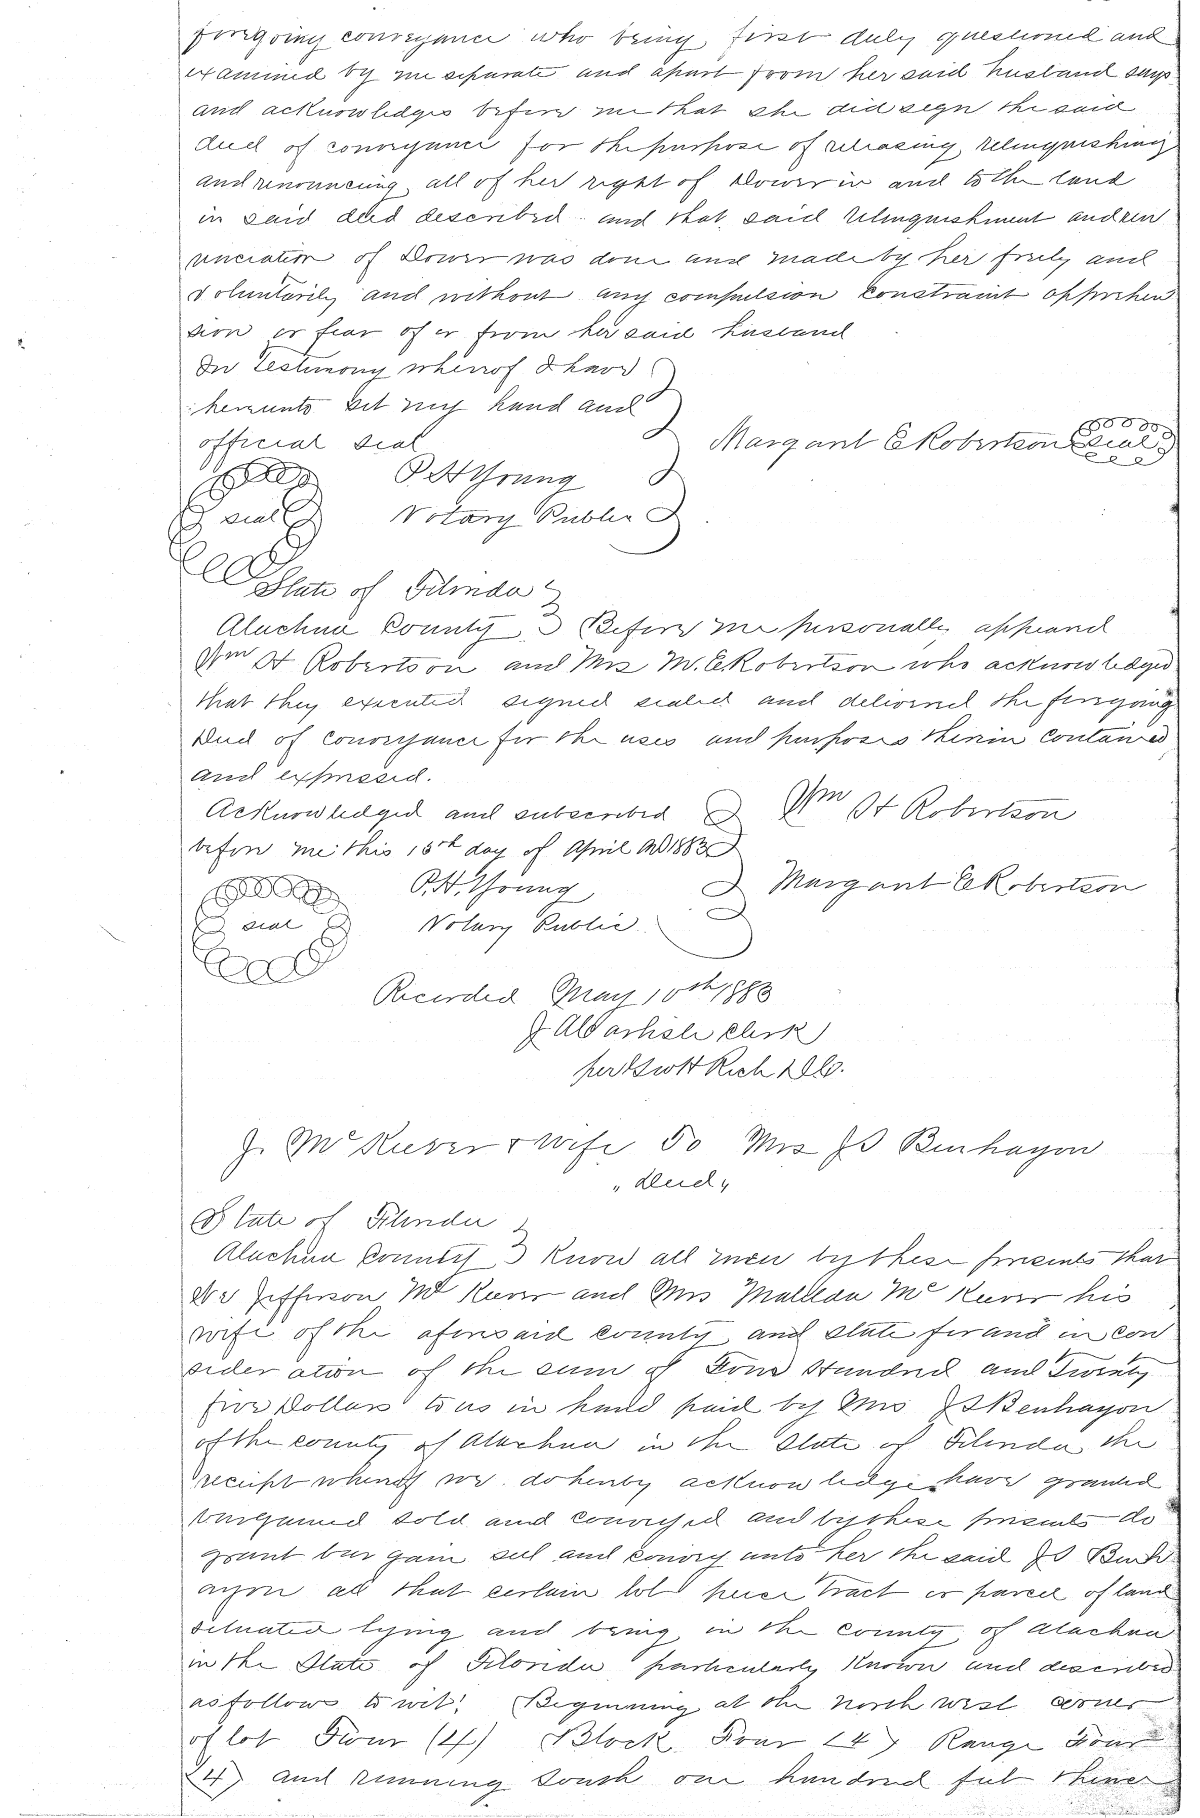 foregoing conveyance who being first duly questioned and
examined by me separate and apart from her said husband says
and acknowledges before me that she did sign the said
deed of conveyance for the purpose of releasing, relinquishing
and renouncing all of her right of Dower in and to the land
in said deed described and that said relinquishment and ren
unciation of Dower was done and made by her freely and
voluntarily and without any compulsion constraint apprehen
sion or fear of or from her said husband
In Testimony whereof I have
hereunto set my hand and
official seal
Margaret E Robertson seal
P. H Young
seal Notary Public
State of Florida
Alachua County Before me personally appeared
Wm H Robertson and Mrs M. E Robertson who acknowledged
that they executed signed sealed and delivered the foregoing
Deed of conveyance for the uses and purposes therein contained
and expressed.
Acknowledged and subscribed Wm H Robertson
before me this 15th day of April AD 1883
P. H. Young Margaret E Robertson
seal Notary Public
Recorded May 10th 1883
J A Carlisle Clerk
per Scott Rich D.C.
J. McKeever & wife To Mrs J S Benhayon
"Deed"
State of Florida
Alachua County Know all men by these presents that
We Jefferson McKeever and Mrs McKeever his
wife of the aforesaid county and state for and in con
sideration of the sum of Four Hundred and Twenty
five Dollars to us in hand paid by Mrs J S Benhayon
of the county of Alachua in the State of Florida the
receipt whereof we do hereby acknowledge have granted
bargained sold and conveyed and by these presents do
grant bargain sell and convey unto her the said J S Benh
ayon all that certain lot piece tract or parcel of land
situated lying and being in the county of Alachua
in the State of Florida particularly known and described
as follows to wit! Beginning at the north west corner
of lot Four (4) Block Four (4) Range Four
(4) and running South one hundred feet thence